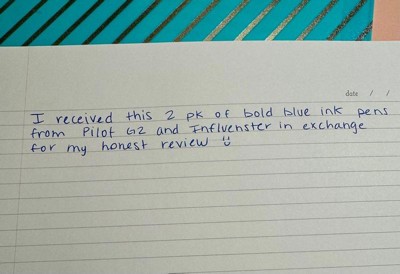 date / /
I received this 2 pk of bold blue ink pens
from Pilot G2 and Influenster in exchange
for my honest review